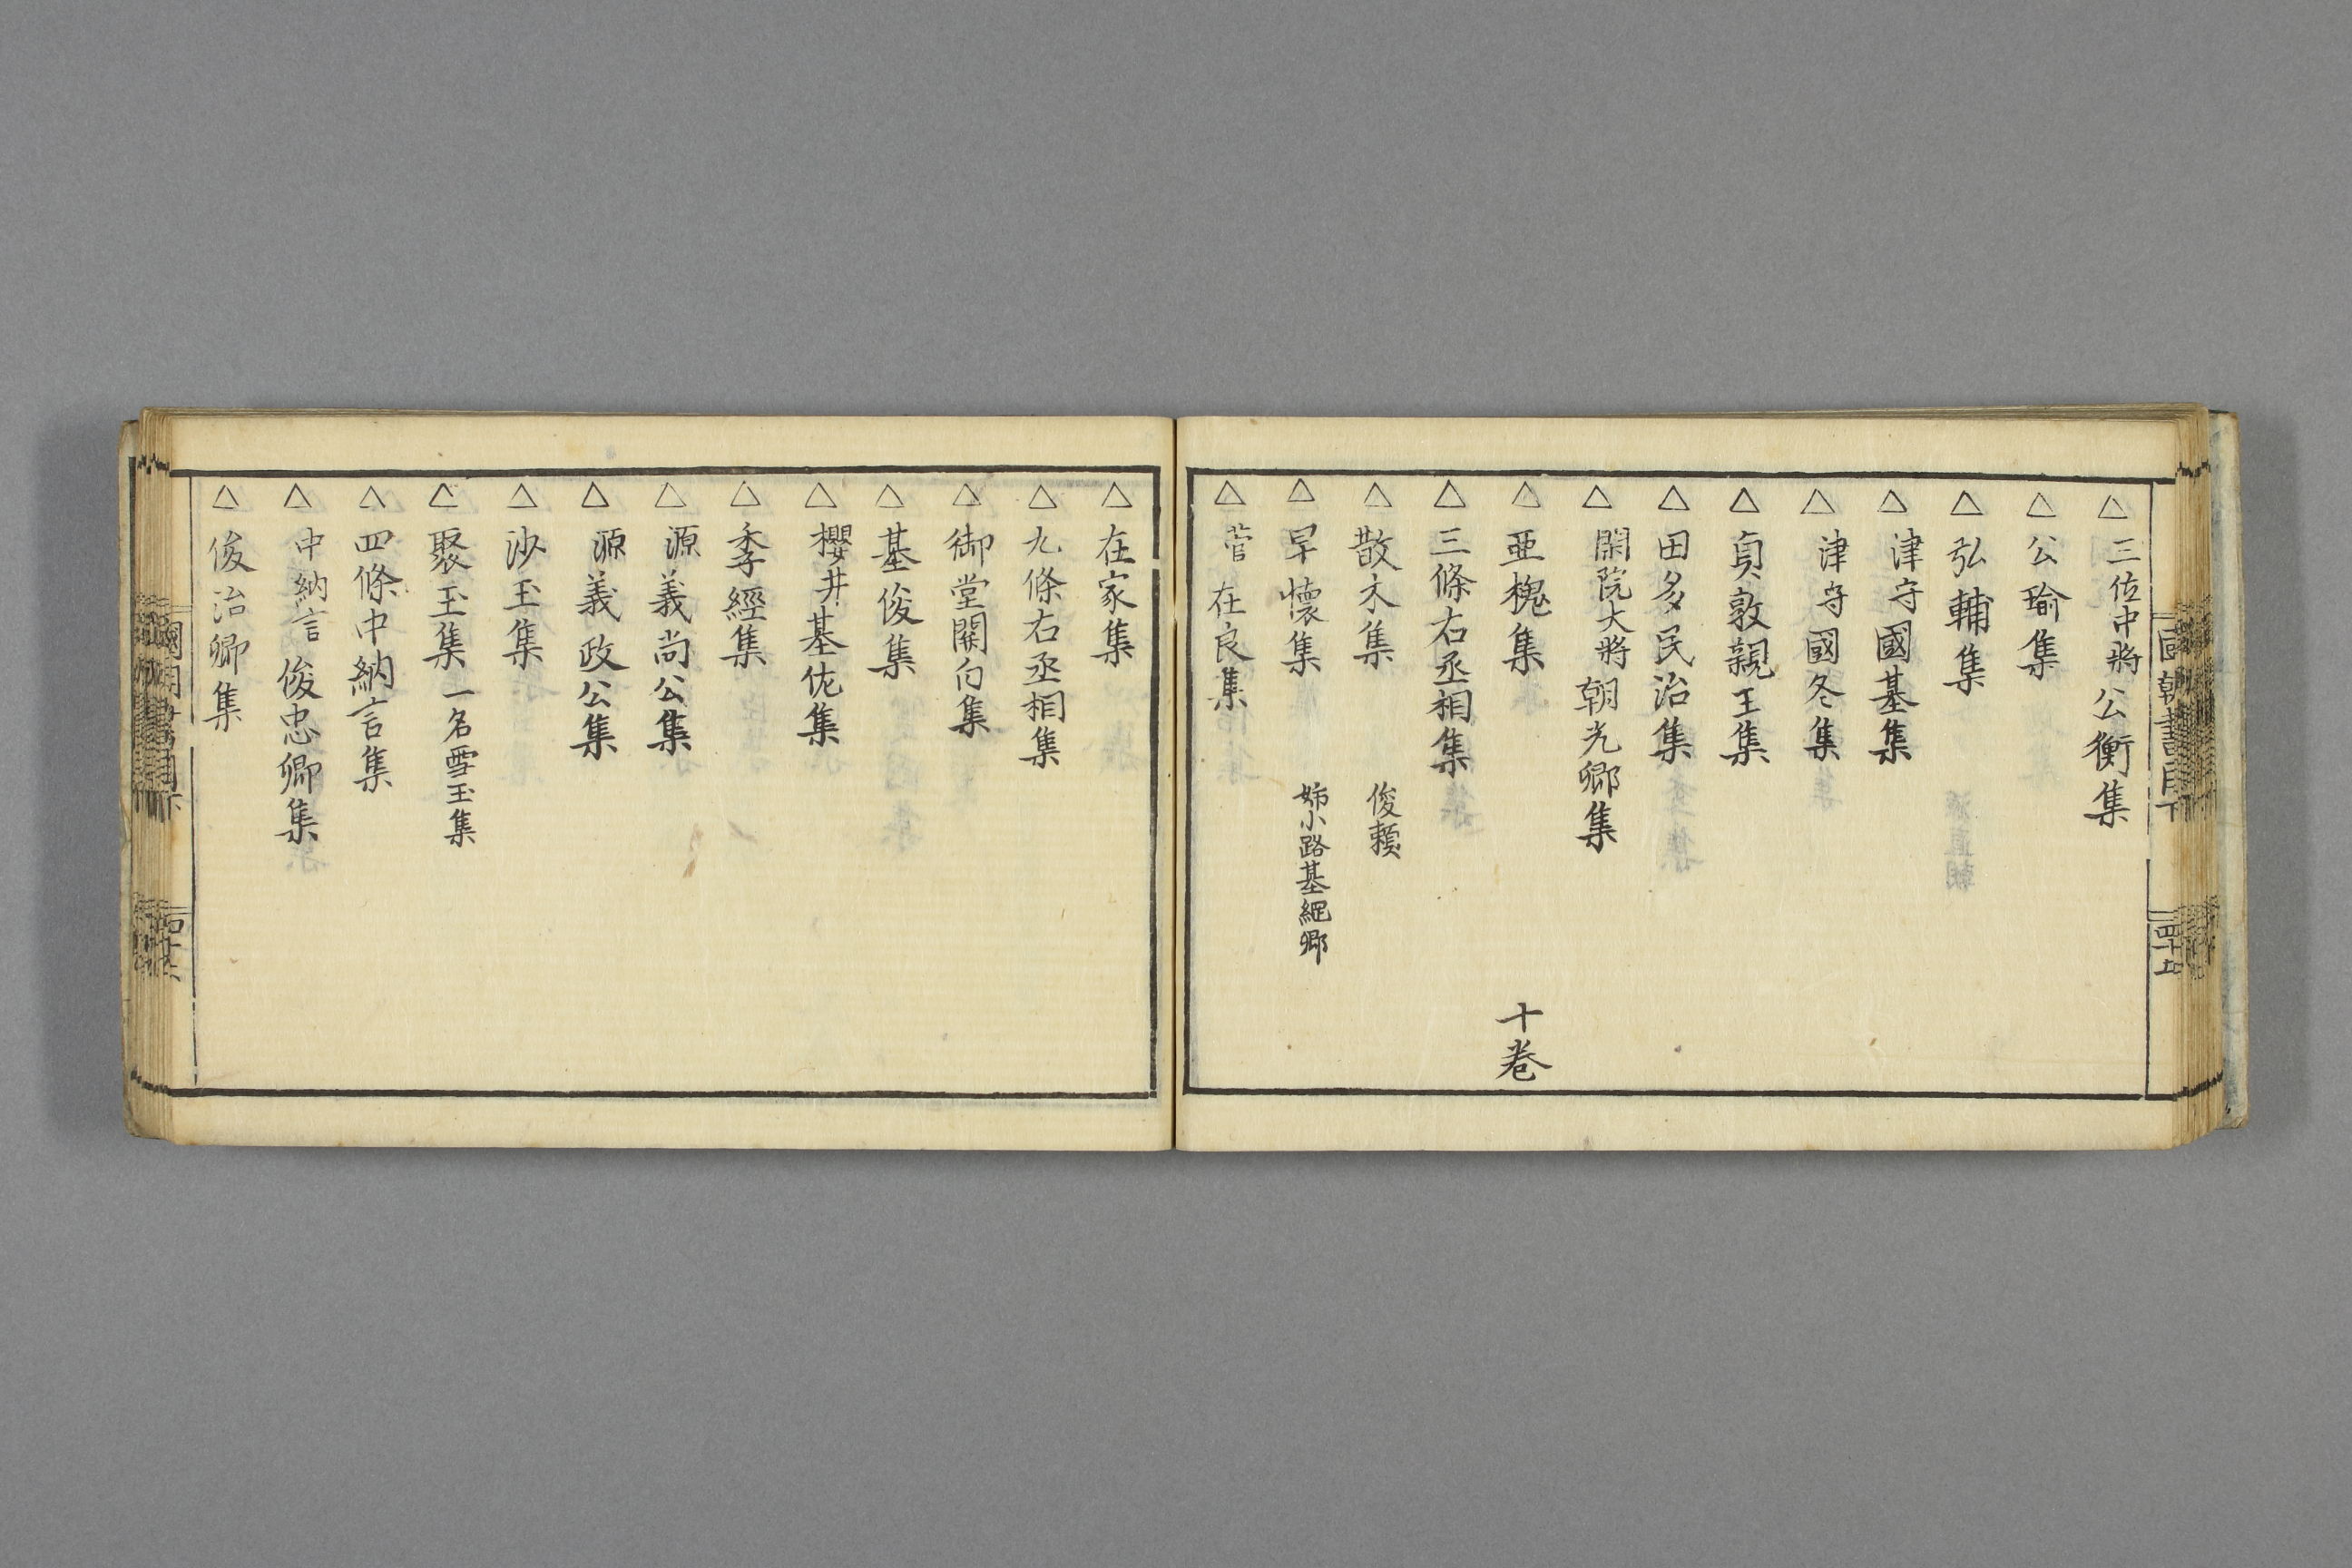 △三位中將公衡集
△公瑜集
△弘輔集
△津守國基集
△津守國冬集
△貞敦親王集
△田多民治集
△閑院大將朝光卿集
△亜槐集 十卷
△三條右丞相集
△散木集 俊頼
△早懷集 姉小路基綱卿
△菅在良集
△在家集
△九條右丞相集
△御堂關白集
△基俊集
△櫻井基佐集
△季經集
△源義尚公集
△源義政公集
△沙玉集
△聚玉集 一名雪玉集
△四條中納言集
△中納言俊忠卿集
△俊治卿集
國朝書目下